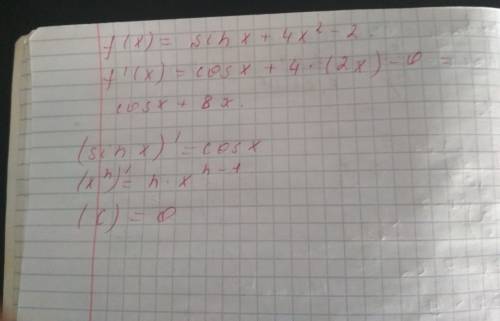 f(x) = sin x + 4x² - 2.
f'(x) = cos x + 4 · (2x) - 0 =
cos x + 8x.
(sin x)' = cos x
(xⁿ)' = n · xⁿ⁻¹
(c) = 0